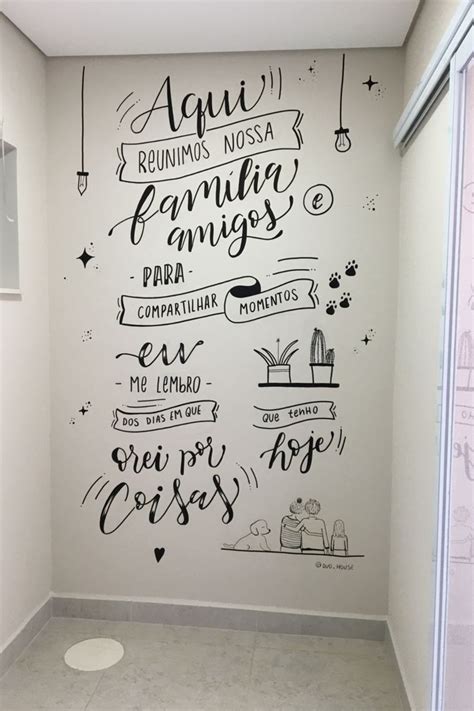 Aqui
REUNIMOS NOSSA
família e
amigos
- PARA -
COMPARTILHAR MOMENTOS
eu
- ME LEMBRO -
DOS DIAS EM QUE
orei por
Coisas
QUE TENHO
hoje
@DUO.HOUSE